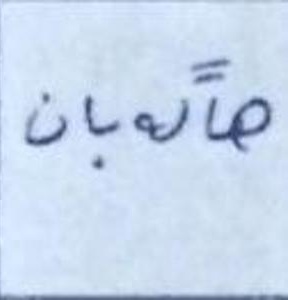 هاگوبان